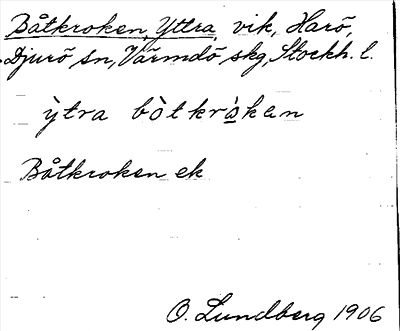 Båtkroken, Yttra, vik, Harö,
Djurö sn, Värmdö skg, Stockh. l.
ỳtra bò̀tkrò̀ken
Båtkroken ek
O. Lundberg 1906